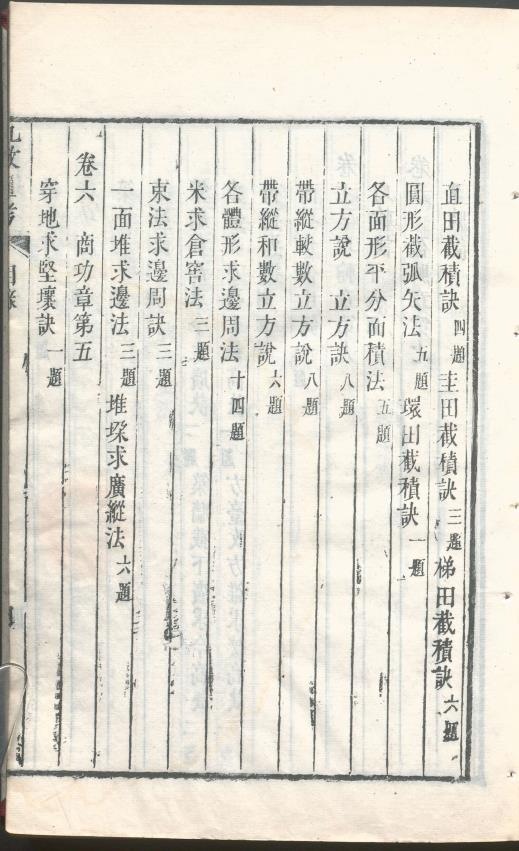 直田截積訣四題 圭田截積訣三題 梯田截積訣六題
圓形截弧矢法五題 環田截積訣一題
各面形平分面積法五題
立方說 立方訣八題
帶縱較數立方說八題
帶縱和數立方說六題
各體形求邊周法十四題
米求倉窖法三題
束法求邊周訣三題
一面堆求邊法三題 堆垛求廣縱法六題
卷六 商功章第五
穿地求堅壤訣一題
目錄